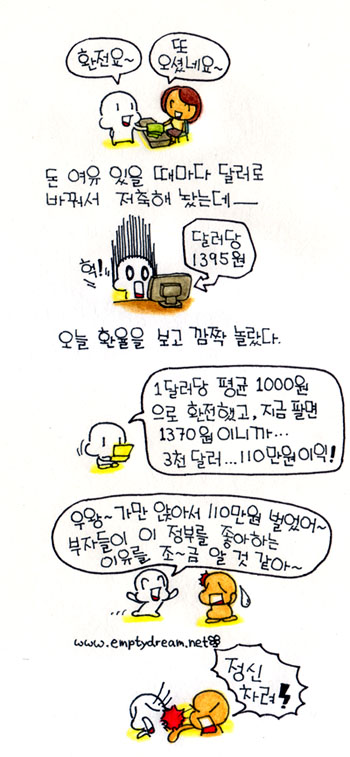 환전요~
또
오셨네요~
돈 여유 있을 때마다 달러로
바꿔서 저축해 놨는데—
달러당
1395원
헉!
오늘 환율을 보고 깜짝 놀랐다.
1달러당 평균 1000원
으로 환전했고, 지금 팔면
1370원이니까...
3천 달러...110만원이익!
우왕~가만 앉아서 110만원 벌었어~
부자들이 이 정부를 좋아하는
이유를 조~금 알 것 같아~
www.emptydream.net
정신
차려!